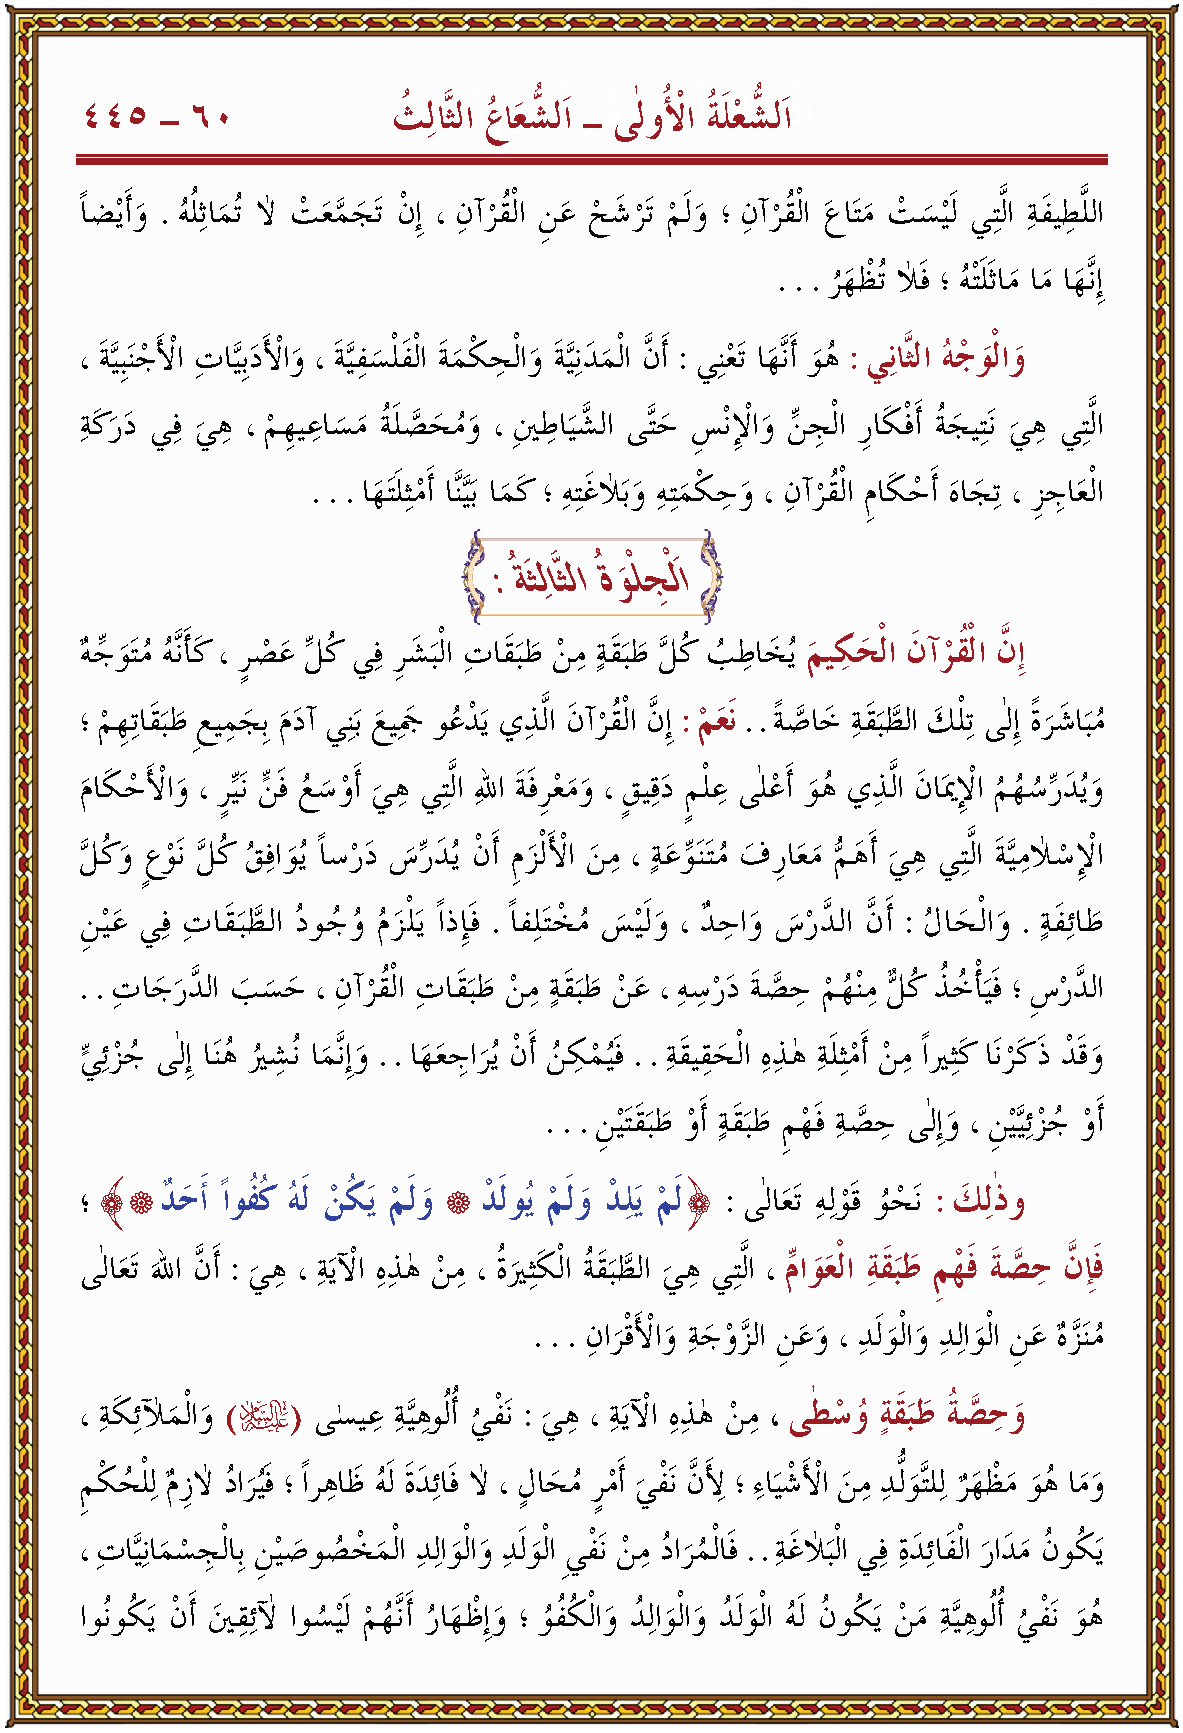 اَلشُّعْلَةُ الْأُولٰى – اَلشُّعَاعُ الثَّالِثُ ٦٠ – ٤٤٥
اللَّطِيفَةِ الَّتِي لَيْسَتْ مَتَاعَ الْقُرْآنِ ؛ وَلَمْ تَرْشَحْ عَنِ الْقُرْآنِ ، إِنْ تَجَمَّعَتْ لَا تُمَاثِلُهُ . وَأَيْضاً
إِنَّهَا مَا مَاثَلَتْهُ ؛ فَلَا تُظْهَرُ . . .
وَالْوَجْهُ الثَّانِي : هُوَ أَنَّهَا تَعْنِي : أَنَّ الْمَدَنِيَّةَ وَالْحِكْمَةَ الْفَلْسَفِيَّةَ ، وَالْأَدَبِيَّاتِ الْأَجْنَبِيَّةَ ،
الَّتِي هِيَ نَتِيجَةُ أَفْكَارِ الْجِنِّ وَالْإِنْسِ حَتَّى الشَّيَاطِينِ ، وَمُحَصَّلَةُ مَسَاعِيهِمْ ، هِيَ فِي دَرَكَةِ
الْعَاجِزِ ، تِجَاهَ أَحْكَامِ الْقُرْآنِ ، وَحِكْمَتِهِ وَبَلَاغَتِهِ ؛ كَمَا بَيَّنَّا أَمْثِلَتَهَا . . .
اَلْجِلْوَةُ الثَّالِثَةُ :
إِنَّ الْقُرْآنَ الْحَكِيمَ يُخَاطِبُ كُلَّ طَبَقَةٍ مِنْ طَبَقَاتِ الْبَشَرِ فِي كُلِّ عَصْرٍ ، كَأَنَّهُ مُتَوَجِّهٌ
مُبَاشَرَةً إِلٰى تِلْكَ الطَّبَقَةِ خَاصَّةً . . نَعَمْ : إِنَّ الْقُرْآنَ الَّذِي يَدْعُو جَمِيعَ بَنِي آدَمَ بِجَمِيعِ طَبَقَاتِهِمْ ؛
وَيُدَرِّسُهُمُ الْإِيمَانَ الَّذِي هُوَ أَعْلٰى عِلْمٍ دَقِيقٍ ، وَمَعْرِفَةَ اللهِ الَّتِي هِيَ أَوْسَعُ فَنٍّ نَيِّرٍ ، وَالْأَحْكَامَ
الْإِسْلَامِيَّةَ الَّتِي هِيَ أَهَمُّ مَعَارِفَ مُتَنَوِّعَةٍ ، مِنَ الْأَلْزَمِ أَنْ يُدَرِّسَ دَرْساً يُوَافِقُ كُلَّ نَوْعٍ وَكُلَّ
طَائِفَةٍ . وَالْحَالُ : أَنَّ الدَّرْسَ وَاحِدٌ ، وَلَيْسَ مُخْتَلِفاً . فَإِذاً يَلْزَمُ وُجُودُ الطَّبَقَاتِ فِي عَيْنِ
الدَّرْسِ ؛ فَيَأْخُذُ كُلٌّ مِنْهُمْ حِصَّةَ دَرْسِهِ ، عَنْ طَبَقَةٍ مِنْ طَبَقَاتِ الْقُرْآنِ ، حَسَبَ الدَّرَجَاتِ . .
وَقَدْ ذَكَرْنَا كَثِيراً مِنْ أَمْثِلَةِ هٰذِهِ الْحَقِيقَةِ . . فَيُمْكِنُ أَنْ يُرَاجِعَهَا . . وَإِنَّمَا نُشِيرُ هُنَا إِلٰى جُزْئِيٍّ
أَوْ جُزْئِيَّيْنِ ، وَإِلٰى حِصَّةِ فَهْمِ طَبَقَةٍ أَوْ طَبَقَتَيْنِ . . .
وذٰلِكَ : نَحْوُ قَوْلِهِ تَعَالٰى : ﴿لَمْ يَلِدْ وَلَمْ يُولَدْ ۞ وَلَمْ يَكُنْ لَهُ كُفُواً أَحَدٌ ۞﴾ ؛
فَإِنَّ حِصَّةَ فَهْمِ طَبَقَةِ الْعَوَامِّ ، الَّتِي هِيَ الطَّبَقَةُ الْكَثِيرَةُ ، مِنْ هٰذِهِ الْآيَةِ ، هِيَ : أَنَّ اللهَ تَعَالٰى
مُنَزَّهٌ عَنِ الْوَالِدِ وَالْوَلَدِ ، وَعَنِ الزَّوْجَةِ وَالْأَقْرَانِ . . .
وَحِصَّةُ طَبَقَةٍ وُسْطٰى ، مِنْ هٰذِهِ الْآيَةِ ، هِيَ : نَفْيُ أُلُوهِيَّةِ عِيسٰى (عليه السلام) وَالْمَلَآئِكَةِ ،
وَمَا هُوَ مَظْهَرٌ لِلتَّوَلُّدِ مِنَ الْأَشْيَاءِ ؛ لِأَنَّ نَفْيَ أَمْرٍ مُحَالٍ ، لَا فَائِدَةَ لَهُ ظَاهِراً ؛ فَيُرَادُ لَازِمٌ لِلْحُكْمِ
يَكُونُ مَدَارَ الْفَائِدَةِ فِي الْبَلَاغَةِ . . فَالْمُرَادُ مِنْ نَفْيِ الْوَلَدِ وَالْوَالِدِ الْمَخْصُوصَيْنِ بِالْجِسْمَانِيَّاتِ ،
هُوَ نَفْيُ أُلُوهِيَّةِ مَنْ يَكُونُ لَهُ الْوَلَدُ وَالْوَالِدُ وَالْكُفُوُ ؛ وَإِظْهَارُ أَنَّهُمْ لَيْسُوا لَآئِقِينَ أَنْ يَكُونُوا